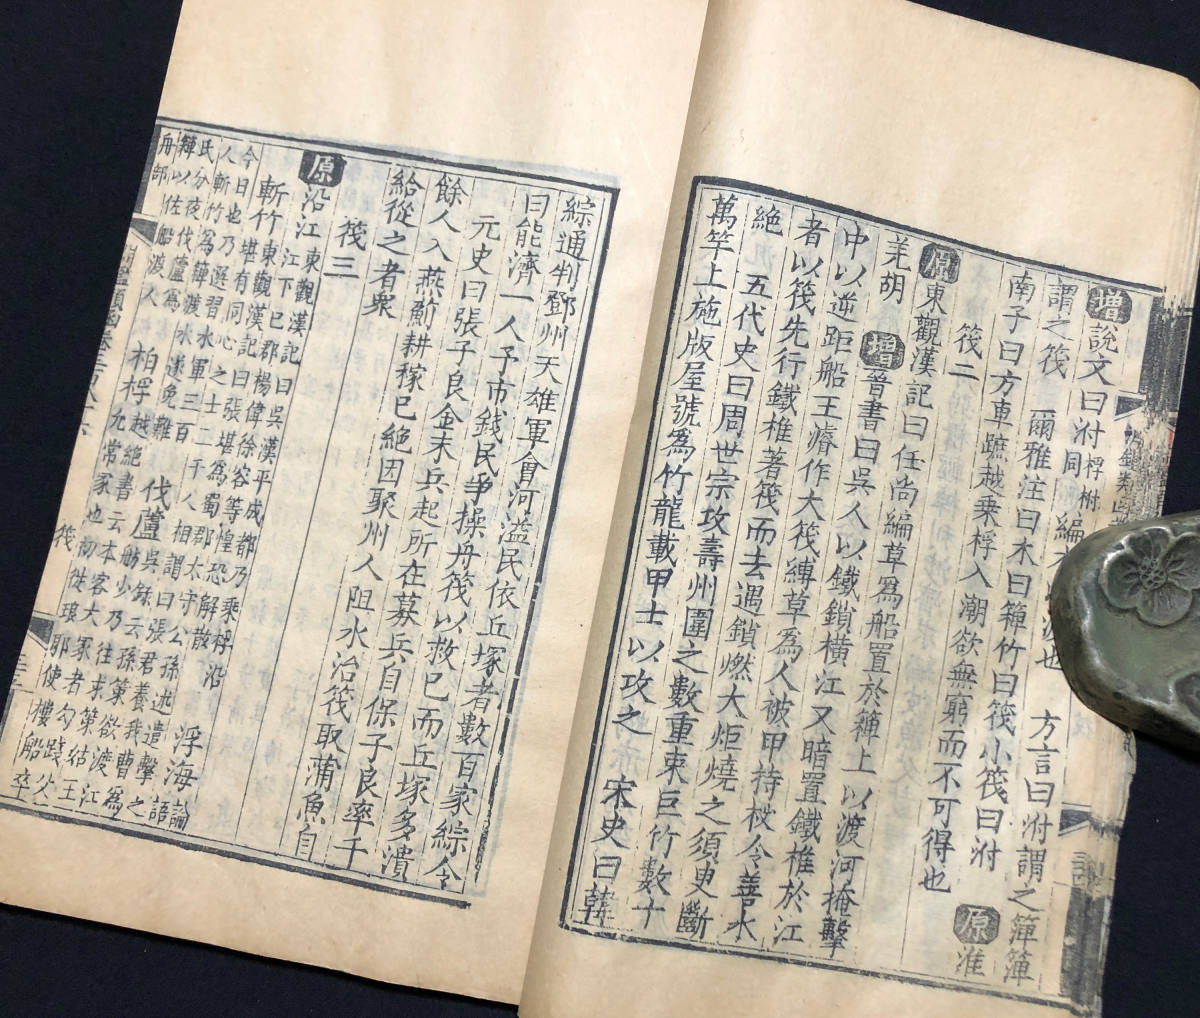 增說文曰泭桴泭同編木以渡也 方言曰泭謂之箄箄
謂之筏 爾雅注曰木曰箄竹曰筏小筏曰泭 原淮
南子曰方車蹠越乗桴入潮欲無窮而不可得也
筏二
原東觀漢記曰任尚編草爲船置於箄上以渡河掩擊
羌胡 增晉書曰吳人以鐵鎖橫江又暗置鐵椎於江
中以逆距船王濬作大筏縛草為人被甲持杖令善水
者以筏先行鐵椎著筏而去遇鎖燃大炬燒之須臾斷
絶 五代史曰周世宗攻壽州圍之數重束巨竹數十
萬竿上施版屋號為竹龍載甲士以攻之 宋史曰韓
綜通判鄧州天雄軍會河溢民依丘塚者數百家綜令
曰能濟一人予市錢民爭操舟筏以救巳而丘塚多潰
元史曰張子良金末兵起所在募兵自保子良率千
餘人入燕薊耕稼已絶因聚州人阻水治筏取蒲魚自
給從之者衆
筏三
原沿江東觀漢記曰吳漢平成都乃乘桴沿江下巴郡楊偉徐容等惶恐解散 浮海論語
斬竹東觀漢記曰張堪為蜀郡太守公孫述遣擊之
今日也乃選習水軍三百人斬竹爲箄渡水遂免難 伐蘆吳錄云張君養我曹為
氏分夜
箄以佐船渡人 柏桴越絶書云
舟部
允常冢也初徙琅邪使樓船卒
筏